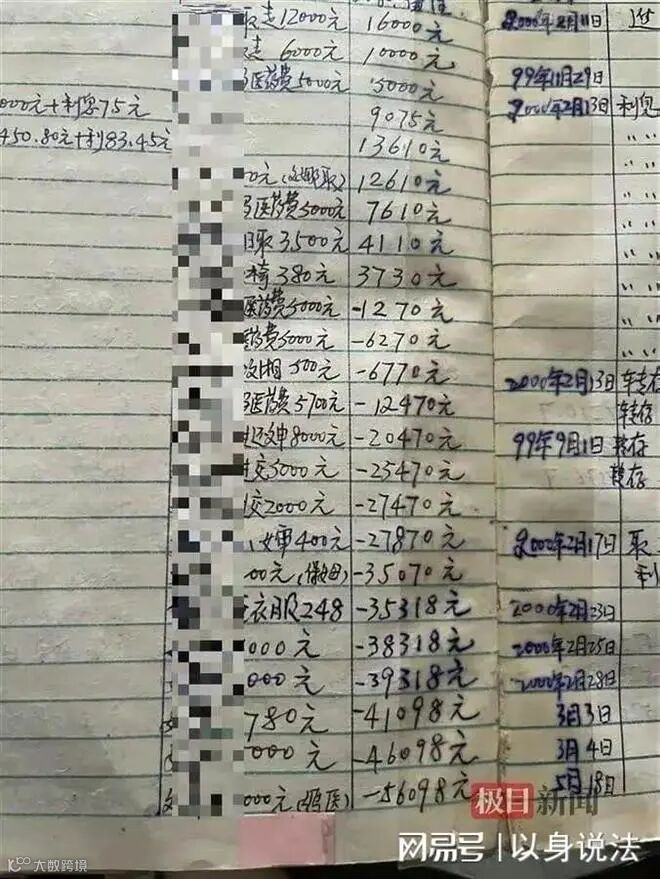 走12000元 16000元 2000年2月11日
走6000元 10000元
医药费5000元 5000元 99年11月29日
000元+利息75元 9075元 2000年2月13日 利息
450.80元+利83.45元 13610元 〃 〃
0元 取) 12610元 〃 〃
医药费5000元 7610元 〃 〃
取3,500元 4110元 〃 〃
椅380元 3730元 〃 〃
医药费5000元 -1270元 〃 〃
药费5000元 -6270元 〃 〃
500元 -6770元 2000年2月13日 转存
医药费5700元 -12470元 转存
8000元 -20470元 99年9月1日 转存
交5000元 -25470元 转存
交2000元 -27470元
400元 -27870元 2000年2月17日 取
00元(保姆) -35070元 利
衣服248 -35318元 2000年2月23日
000元 -38318元 2000年2月25日
000元 -39318元 2000年2月28日
780元 -41098元 3月3日
000元 -46098元 3月4日
000元 -56098元 5月18日
极目新闻
网易号 | 以身说法
大数跨境